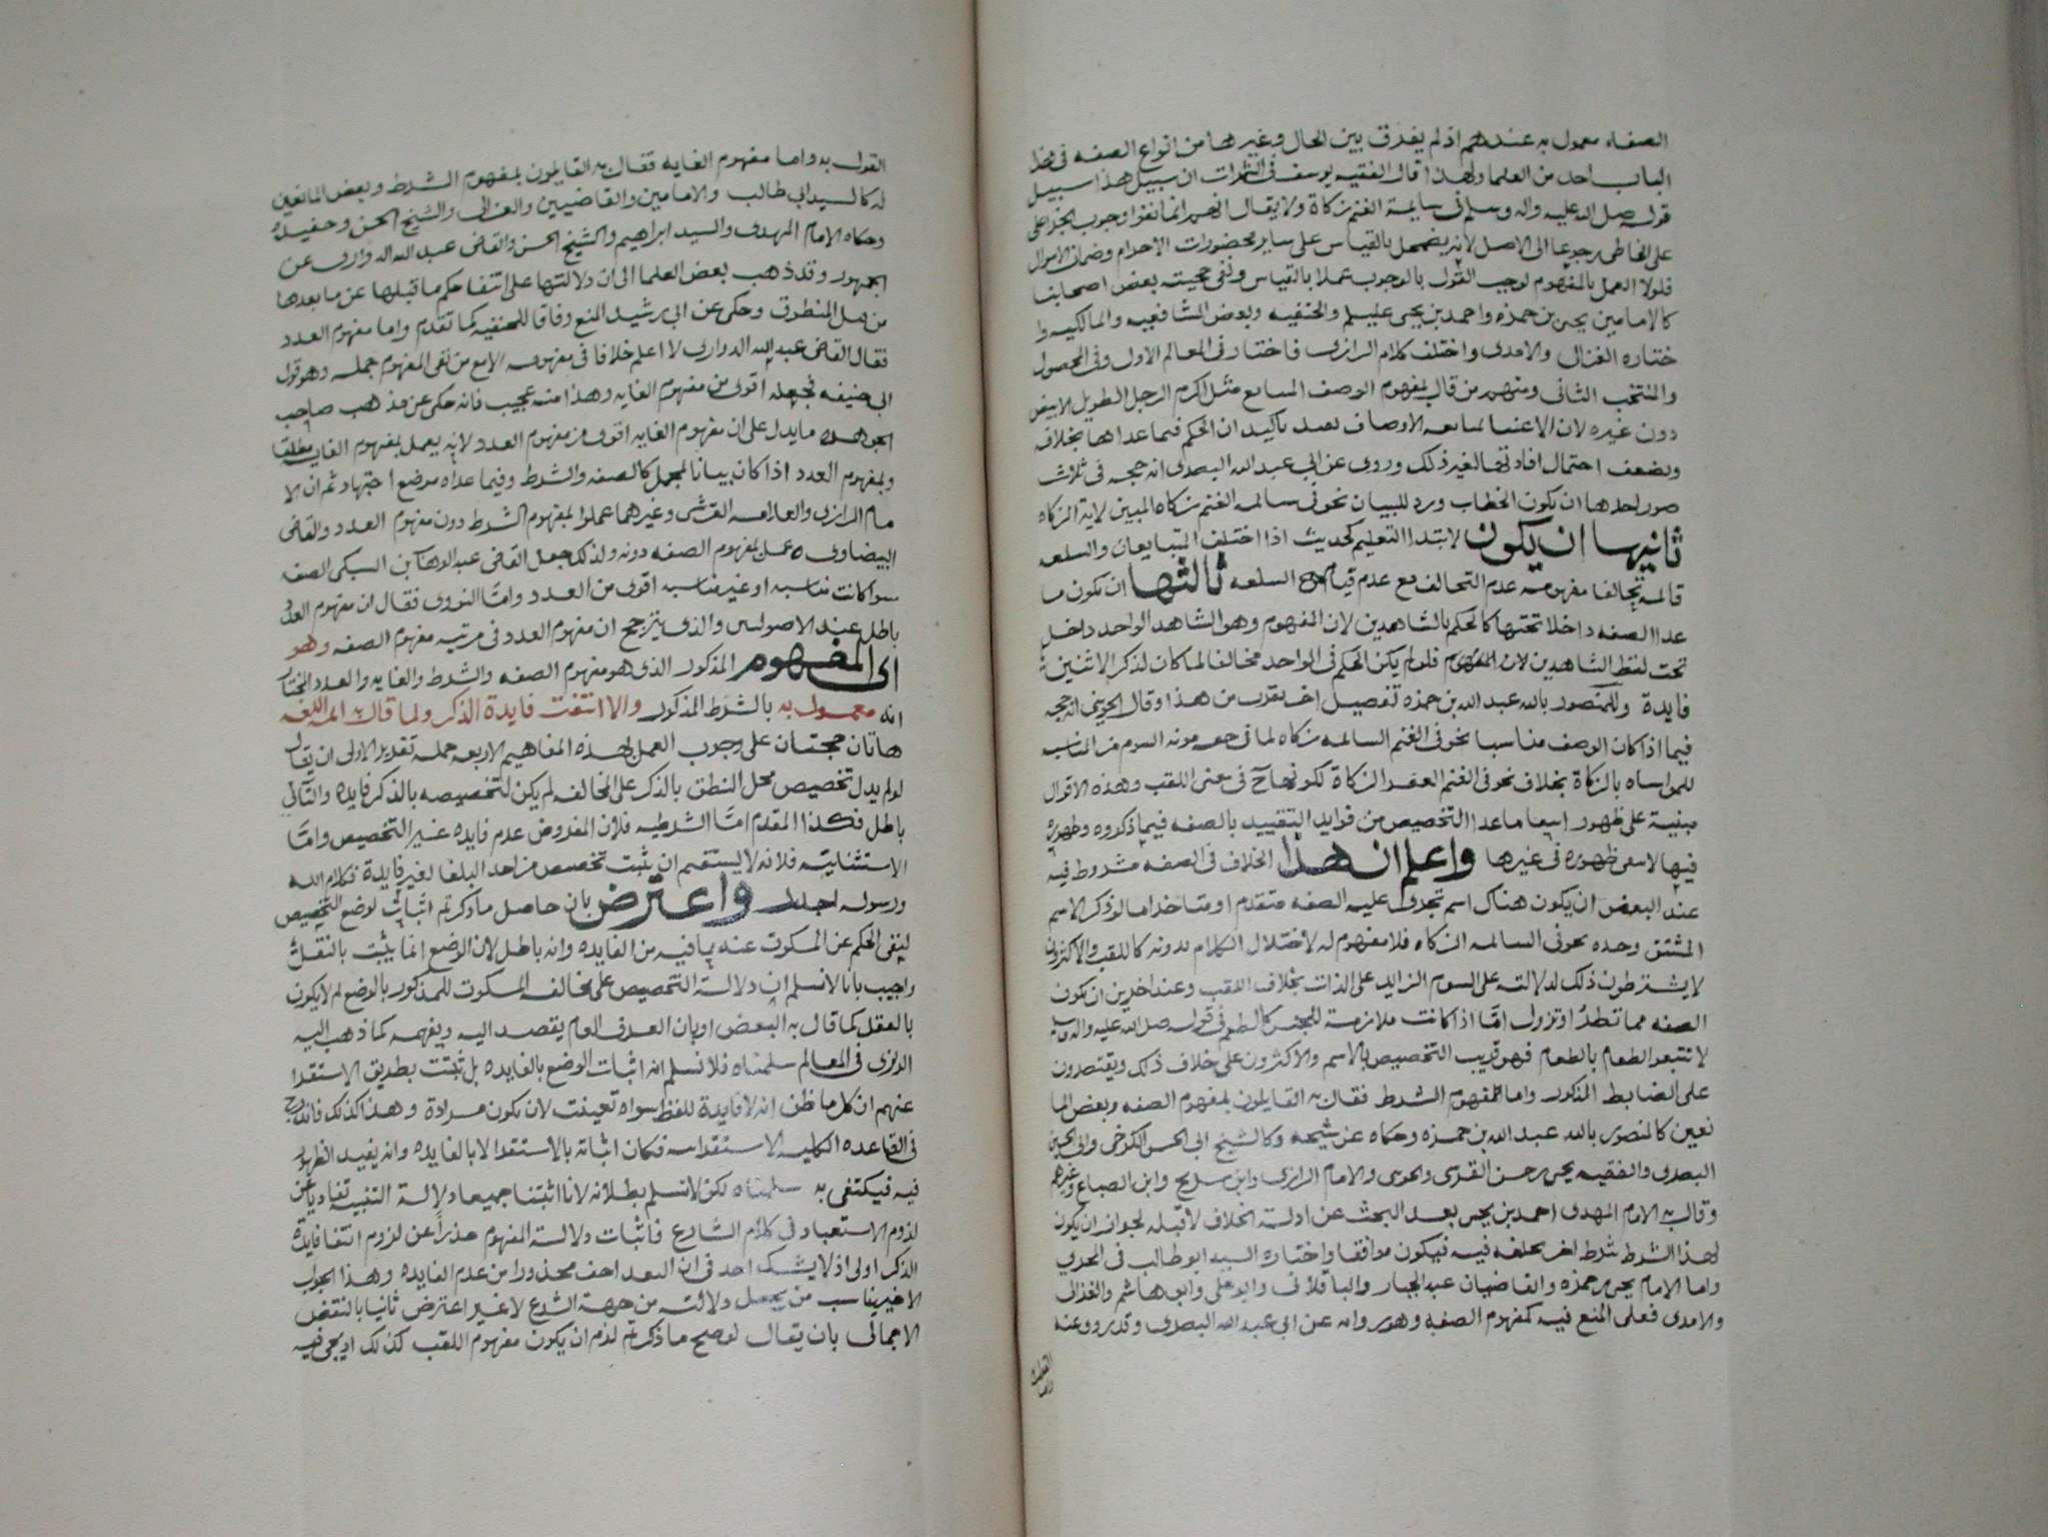 الصفه معمول به عندهم اذ لم يفرق بين الحال وغيرها من انواع الصفه في هذا
الباب احد من العلما ولهذا قال الفقيه يوسف في الثمرات ان سبيل هذا سبيل
قوله صلى الله عليه واله وسلم في سايمة الغنم زكاة ولا يقال انهم انما نفوا وجوب الجزا على
على الخاطي رجوعا الى الاصل لانه يضمحل بالقياس على ساير محضورات الاحرام وضمان الاموال
فلولا العمل بالمفهوم لوجب القول بالوجوب عملا بالقياس ونفى حجيته بعض اصحابنا
كالامامين يحيى بن حمزه واحمد بن يحيى عليلم والحنفيه وبعض الشافعيه والمالكيه وا
ختاره الغزالي والامدي واختلف كلام الرازي فاختار في المعالم الاول وفي المحصول
والمنتخب الثاني ومنهم من قال بمفهوم الوصف المتتابع مثل اكرم الرجل الطويل الابيض
دون غيره لان الاعتنا بمتابعه الاوصاف يفيد تاكيد ان الحكم فيما عداها بخلافه
ويضعف احتمال افادتها لغير ذلك وروي عن ابي عبد الله البصري انه حجه في ثلاث
صور احدها ان يكون الخطاب ورد للبيان نحو في سايمه الغنم زكاه المبين لاية الزكاه
ثانيها ان يكون لابتدا التعليم كحديث اذا اختلف المتبايعان والسلعه
قائمه تحالفا مفهومه عدم التحالف مع عدم قيام السلعه ثالثها ان يكون ما
عدا الصفه داخلا تحتها كالحكم بالشاهدين لان المفهوم وهو الشاهد الواحد داخل
تحت لفظ الشاهدين لان المفهوم فلو لم يكن الحكم في الواحد مخالفا لما كان لذكر الاثنين
فايدة وللمنصور بالله عبد الله بن حمزه تفصيل اخر يقرب من هذا وقال الجويني انه حجه
فيما اذا كان الوصف مناسبا نحو في الغنم السايمه زكاه لما في خفه مونه السوم من المناسبه
للمواساه بالزكاة بخلاف نحو في الغنم العفر الزكاة لكونها ح في معنى اللقب وهذه الاقوال
مبنية على ظهور انتفا ما عدا التخصيص من فوايد التقييد بالصفه فيما ذكروه وظهوره
فيها لا ينفي ظهوره في غيرها واعلم ان هذا الخلاف في الصفه مشروط فيه
عند البعض ان يكون هناك اسم تجري عليه الصفه متقدم او متاخر اما لو ذكر الاسم
المشتق وحده نحو في السايمه الزكاه فلا مفهوم له لاختلال الكلام بدونه كاللقب والاكثرون
لا يشترطون ذلك لدلالته على السوم الزايد على الذات بخلاف اللقب وعند اخرين ان تكون
الصفه مما تطرُأ وتزول امَّا اذا كانت ملازمة للجنس كالطعم في قوله صلى الله عليه واله وسلم
لا تبيعوا الطعام بالطعام فهو قريب التخصيص بالاسم والاكثرون على خلاف ذلك ويقتصرون
على الضابط المذكور واما مفهوم الشرط فقال به القايلون بمفهوم الصفه وبعض الما
نعين كالمنصور بالله عبد الله بن حمزه وحكاه عن شيخه وكالشيخ ابي الحسن الكرخي وابي الحسين
البصري والفقيه يحيى بن حسن القرشي والجويني والامام الرازي وابن سريج وابن الصباغ وغيرهم
وقال به الامام المهدي احمد بن يحيى بعد البحث عن ادلة الخلاف لا قبله لجواز ان يكون
لهذا الشرط شرط اخر يخلفه فيه فيكون موافقا واختاره السيد ابو طالب في المجزي
واما الامام يحيى بن حمزه والقاضيان عبد الجبار والباقلاني وابو علي وابو هاشم والغزالي
والامدي فعلى المنع فيه كمفهوم الصفه وهو رواية عن ابي عبد الله البصري وقد روي عنه
القول به واما مفهوم الغايه فقال به القايلون بمفهوم الشرط وبعض المانعين
له كالسيد ابي طالب والامامين والقاضيين والغزالي والشيخ الحسن وحفيده
وحكاه الامام المهدي والسيد ابراهيم والشيخ الحسن والقاضي عبد الله الدواري عن
الجمهور وقد ذهب بعض العلما الى ان دلالتها على انتفا حكم ما قبلها عن ما بعدها
من قبيل المنطوق وحكي عن ابن رشيد المنع وفاقا للحنفيه كما تقدم واما مفهوم العدد
فقال القاضي عبد الله الدواري لا اعلم خلافا في مفهومه الا مع من نفى المفهوم جمله وهو قول
ابي حنيفه فجعله اقوى من مفهوم الغايه وهذا منه عجيب فانه حكى عن مذهب صاحب
الجوهره ما يدل على ان مفهوم الغايه اقوى من مفهوم العدد لانه يعمل بمفهوم الغايه مطلقا
وبمفهوم العدد اذا كان بيانا لمجمل كالصفه والشرط وفيما عداه موضع اجتهاد ثم ان الا
مام الرازي والعلامه القرشي وغيرهما عملوا بمفهوم الشرط دون مفهوم العدد والقاضي
البيضاوي عمل بمفهوم الصفه دونه ولذلك جعل القاضي عبد الوهاب بن السبكي الصفه
سوا كانت مناسبه او غير مناسبه اقوى من العدد وامَّا النووي فقال ان مفهوم العدد
باطل عند الاصوليين والذي يترجح ان مفهوم العدد في مرتبه مفهوم الصفه وهو
اي المفهوم المذكور الذي هو مفهوم الصفه والشرط والغايه والعدد المختار
انه معمول به بالشرط المذكور والا انتفت فايدة الذكر ولما قال به ايمه اللغه
هاتان حجتان على وجوب العمل بهذه المفاهيم الاربعه جمله تقدير الاولى ان يقال
لو لم يدل تخصيص محل النطق بالذكر على المخالفه لم يكن لتخصيصه بالذكر فايده والتالي
باطل فكذا المقدم امَّا الشرطيه فلان المفروض عدم فايده غير التخصيص وامَّا
الاستثنائيه فلانه لا يستقيم ان يثبت تخصيص من احد البلغا لغير فايدة فكلام الله
ورسوله اجدر واعترض بان حاصل ما ذكرتم اثبات لوضع التخصيص
لنفي الحكم عن المسكوت عنه بما فيه من الفايده وانه باطل لان الوضع انما يثبت بالنقل
واجيب بانا لا نسلم ان دلالة التخصيص على مخالفه المسكوت للمذكور بالوضع لم لا يكون
بالعقل كما قال به البعض او بان العرف العام يقصد اليه ويفهمه كما ذهب اليه
الرازي في المعالم سلمناه فلا نسلم انه اثبات الوضع بالفايده بل ثبتت بطريق الاستقرا
عنهم ان كل ما ظن انه لا فايدة للفظ سواه تعينت لان تكون مرادة وهذا كذلك فاندرج
في القاعده الكليه الاستقرائيه فكان اثباته بالاستقرا لا بالفايده وانه يفيد الظهور
فيه فيكتفى به سلمناه لكن لا نسلم بطلانه لانا اثبتنا جميعا دلالة التنبيه تفاديا عن
لزوم الاستبعاد في كلام الشارع فاثبات دلالة المفهوم حذرا عن لزوم انتفا فايدة
الذكر اولى اذ لا يشك احد في ان البعد اخف محذورا من عدم الفايده وهذا الجواب
الاخير يناسب من يجعل دلالته من جهة الشرع لا غير اعترض ثانيا بالنقض
الاجمالي بان يقال لو صح ما ذكرتم لزم ان يكون مفهوم اللقب كذلك اذ يجي فيه